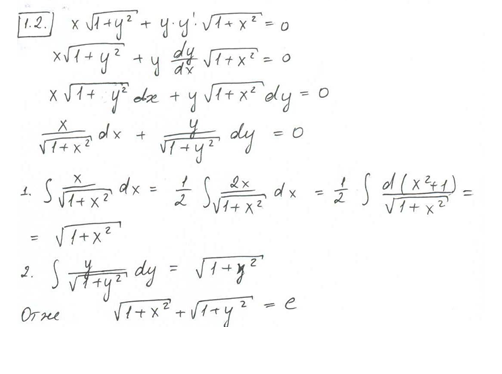 1.2. x √(1+y²) + y·y'·√(1+x²) = 0
x√(1+y²) + y dy/dx √(1+x²) = 0
x √(1+ y²) dx + y √(1+x²) dy = 0
x/√(1+x²) dx + y/√(1+y²) dy = 0
1. ∫ x/√(1+x²) dx = 1/2 ∫ 2x/√(1+x²) dx = 1/2 ∫ d(x²+1)/√(1+x²) =
= √(1+x²)
2. ∫ y/√(1+y²) dy = √(1+y²)
Отже √(1+x²) + √(1+y²) = c